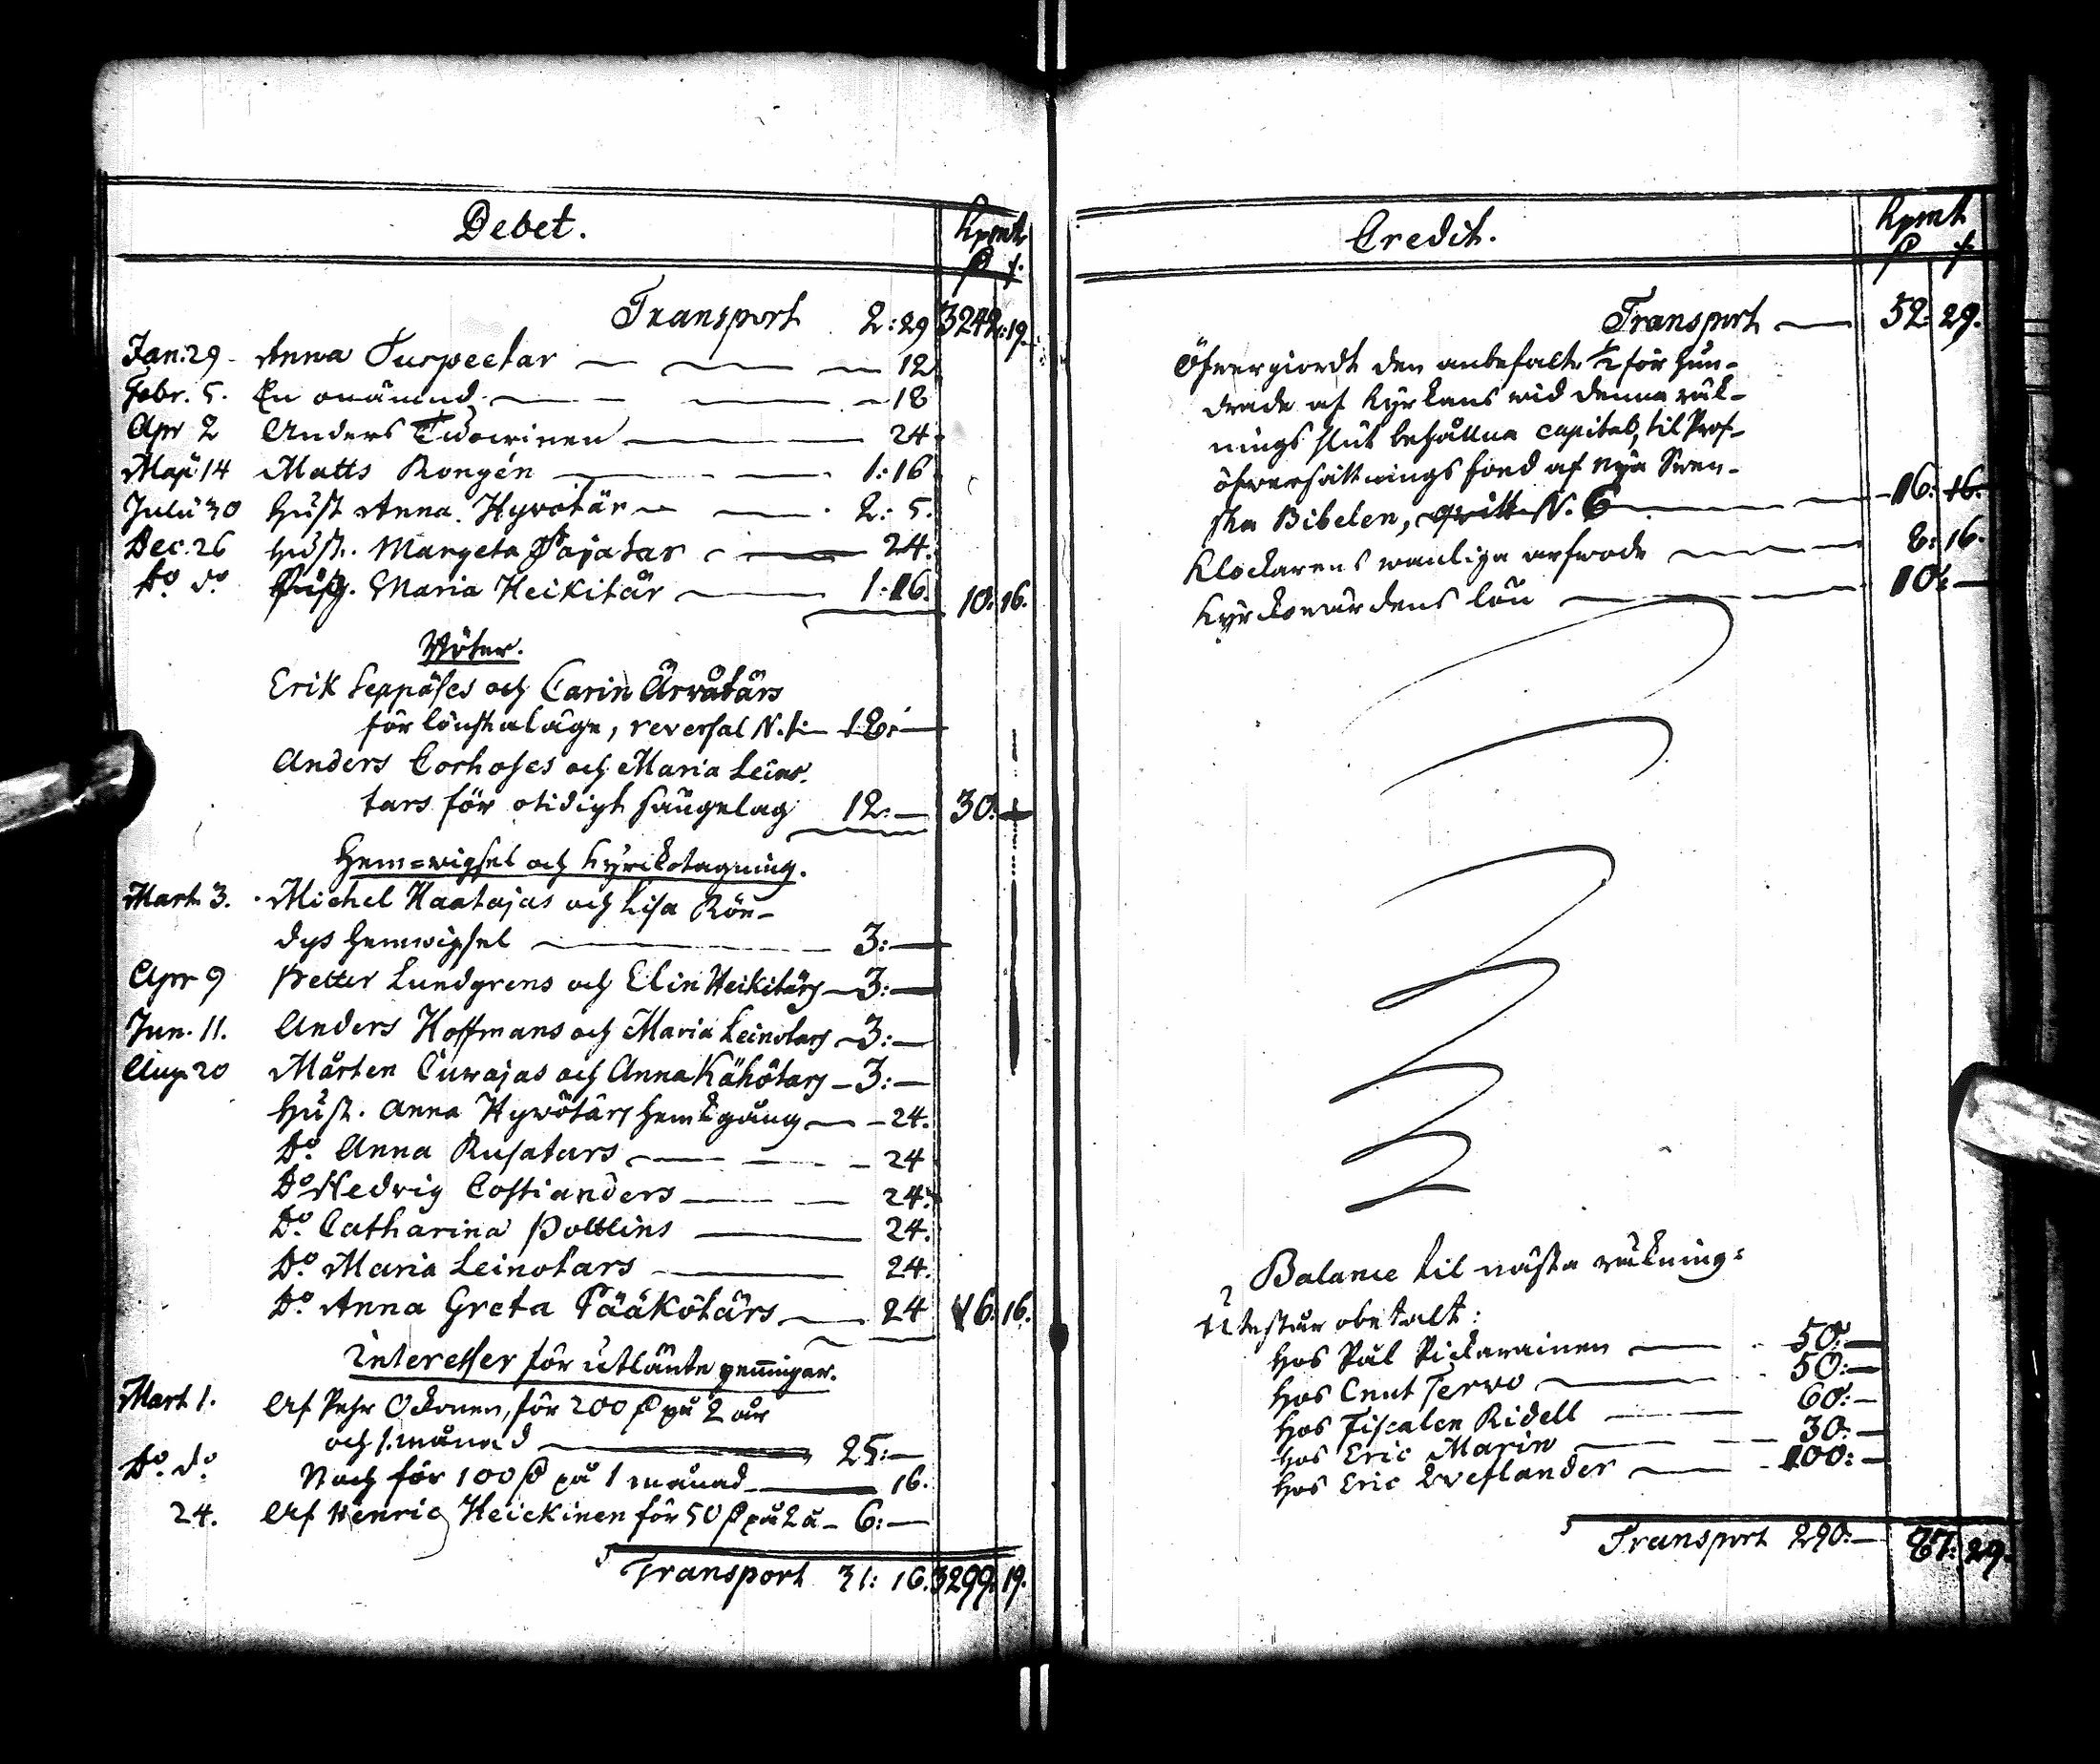 Debet.
Kpmt
Transport 2:29 3242:19.
Jan: 29 Anna Turpeetar 12
Febr. 5. En onämnd 18
Apr 2 Anders Tidwinen 24
Maji 14 Matts Rongén 1:16
Julii 30 Hust Anna Hyvotär 2: 5.
Dec. 26 Hust. Margeta Pajatar 24.
Do do Pig. Maria Heikitär 1:16. 10: 16.
Böter.
Erik Seppäses och Carin Ärvätärs
för lönskaläge, reversal N. 1: 18:—
Anders Corhoses och Maria Leino-
tars för otidigt sängelag 12:— 30:—
Hem=wigsel och Kyrkotagning.
Mart. 3. Michel Haatajas och Lisa Rön-
dys hemwigsel 3:—
Apr 9 Petter Lundgrens och Elin Heikitärs 3:—
Jun. 11. Anders Hoffmans och Maria Leinotars 3:—
Aug. 20 Mårten Curajas och Anna Kähötars 3:—
Hust. Anna Hywötärs hemkgång 24.
Do. Anna Rusatars 24
Do Hedvig Costianders 24:
Do. Catharina Poltlins 24.
Do. Maria Leinotars 24.
Do. Anna Greta Pääkötärs 24 16: 16.
Interesser för utlänte penningar.
Mart 1. Af Pehr Ockonen, för 200 på 2 åar
och 1. månad 25:—
Do. do. Noch för 100 på 1 månad 16.
24. Af Henric Heickinen för 50 på 2 å 6:—
Transport 31: 16. 3299. 19.
Credit.
Kpmt
Transport 52: 29.
Öfvergiordt den anbefalte 1/2 för hun-
drade af Kyrkans wid denna räk-
nings slut behållna capital, til Prof-
öfversättnings fond af nya Swen-
ska Bibelen, qvitt N. 6 16: 16.
Klockarens wanliga arfwode 8: 16.
Kyrckowärdens lön 10:—
Balance til nästa räkning:
Utestår obetalt:
Hos Pål Pickarainen 50:—
Hos Cnut Tervo 50:—
Hos Fiscalen Ridell 60:—
Hos Eric Marin 30:—
Hos Eric Weflander 100:—
Transport 290:— 87: 29.